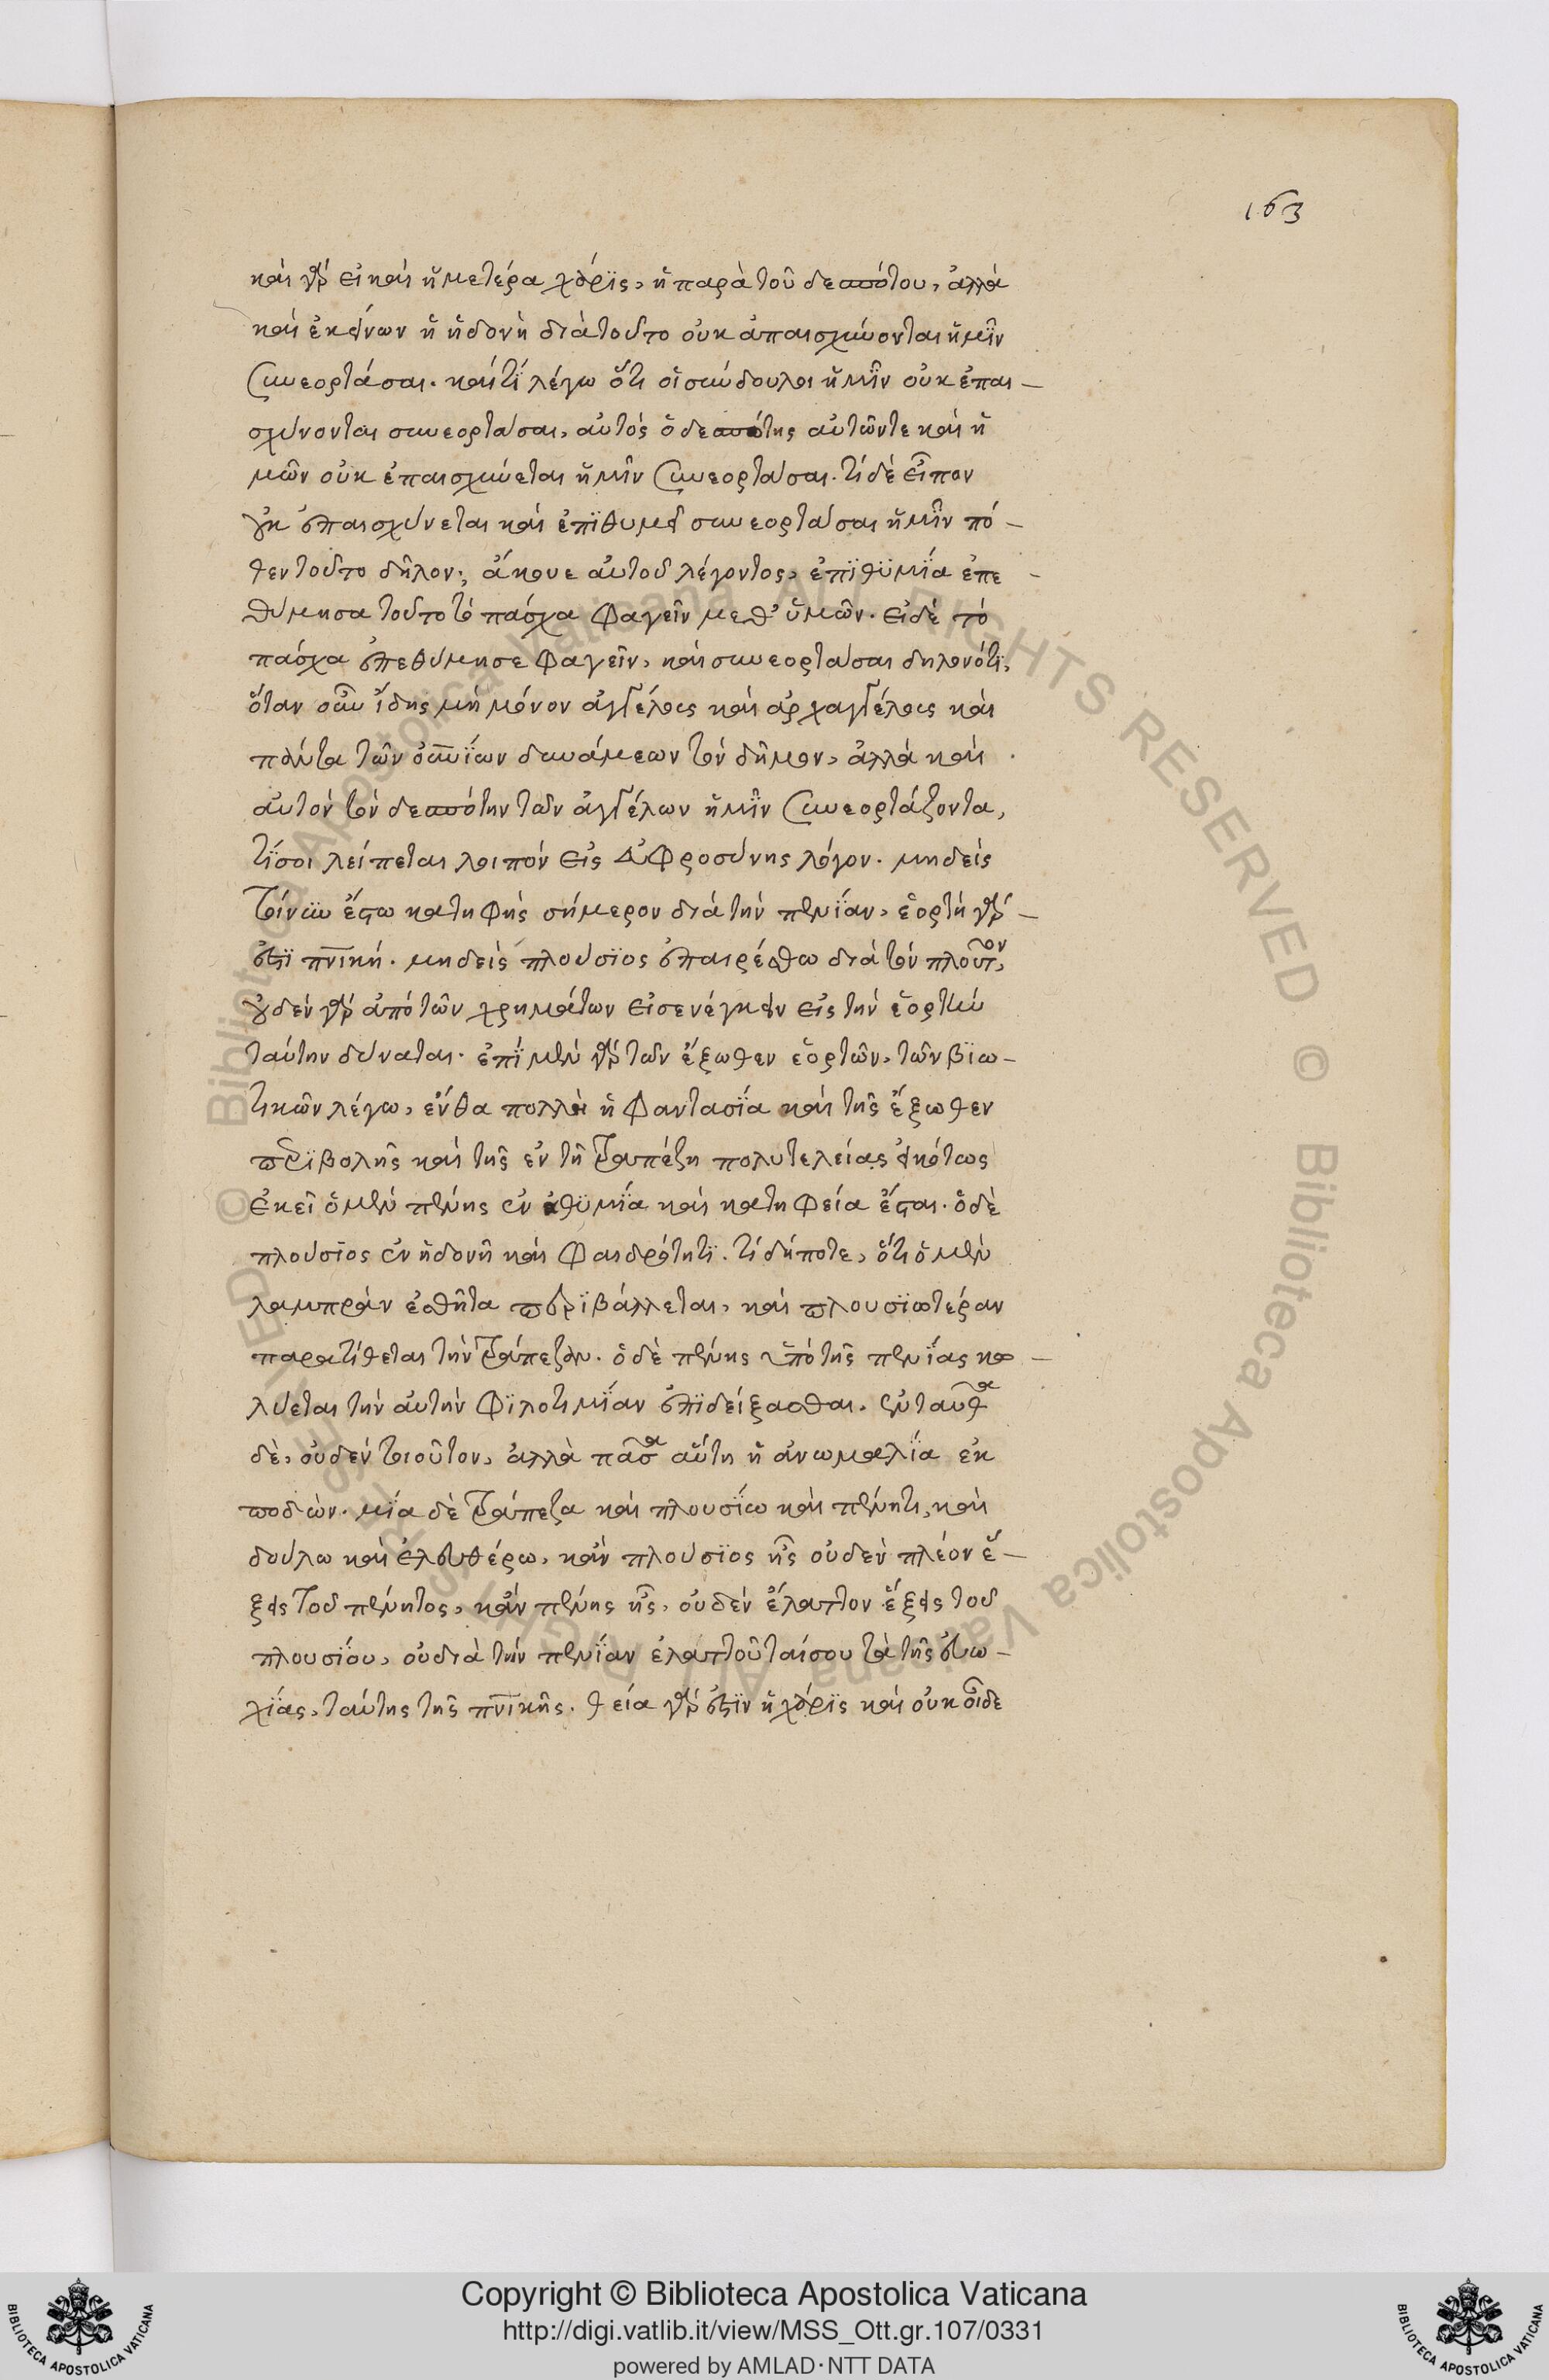 163
καὶ γὰρ εἰ καὶ ἡμετέρα χάρϊς, ἡ παρὰ τοῦ δεσπότου, ἀλλὰ
καὶ ἐκείνων ἡ ἡδονὴ διὰ τοῦτο οὐκ ἀπαισχύνονται ἡμῖν
συνεορτάσαι. καὶ τί λέγω ὅτι οἱ σύνδουλοι ἡμῖν οὐκ ἐπαι-
σχύνονται συνεορτάσαι, αὐτὸς ὁ δεσπότης αὐτῶν τε καὶ ἡ
μῶν οὐκ ἐπαισχύνεται ἡμῖν συνεορτάσαι. τί δὲ εἶπον
οὐκ ἐπαισχύνεται καὶ ἐπϊθυμεῖ συνεορτάσαι ἡμῖν πό-
θεν τοῦτο δῆλον; ἄκουε αὐτοῦ λέγοντος, ἐπϊθϋμΐα ἐπε-
θύμησα τοῦτο τὸ πάσχα φαγεῖν μεθ' ὑμῶν. εἰ δὲ τὸ
πάσχα ἐπεθύμησε φαγεῖν, καὶ συνεορτάσαι δηλονότϊ,
ὅταν οὖν ἴδης μὴ μόνον ἀγγέλους καὶ ἀρχαγγέλους καὶ
πάντα τῶν οὐνΐων δυνάμεων τὸν δῆμον, ἀλλὰ καὶ
αὐτὸν τὸν δεσπότην τῶν ἀγγέλων ἡμῖν συνεορτάζοντα,
τΐ σοι λείπεται λοιπὸν εἰς εὐφροσύνης λόγον. μηδεὶς
τοίνυν ἔστω κατηφὴς σήμερον διὰ τὴν πενΐαν, ἑορτὴ γάρ-
ἐστϊ πνϊκή. μηδεὶς πλούσϊος ἐπαιρέσθω διὰ τὸν πλοῦτον,
οὐδὲν γὰρ ἀπὸ τῶν χρημάτων εἰσενέγκειν εἰς τὴν ἑορτὴν
ταύτην δύναται. ἐπὶ μὲν γὰρ τῶν ἔξωθεν ἑορτῶν, τῶν βϊω-
τικῶν λέγω, ἔνθα πολλὴ ἡ φαντασΐα καὶ τῆς ἔξωθεν
περϊβολῆς καὶ τῆς ἐν τῇ τραπέζη πολυτελείας εἰκότως
ἐκεῖ ὁ μὲν πένης ἐν ἀθϋμΐα καὶ κατηφεία ἔσται. ὁ δὲ
πλούσϊος ἐν ἡδονῇ καὶ φαιδρότητϊ. τί δήποτε, ὅτι ὁ μὲν
λαμπρὰν ἐσθῆτα περϊβάλλεται, καὶ πλουσϊωτέραν
παρατίθεται τὴν τράπεζαν. ὁ δὲ πένης ὑπὸ τῆς πενΐας κω-
λύεται τὴν αὐτὴν φϊλοτιμΐαν ἐπϊδείξασθαι. ἐνταῦθα
δὲ, οὐδὲν τοιοῦτον, ἀλλὰ πᾶσα αὕτη ἡ ἀνωμαλΐα ἐκ
ποδὼν. μΐα δὲ τράπεζα καὶ πλουσΐω καὶ πένητι, καὶ
δούλω καὶ ἐλευθέρω, κἂν πλούσϊος ἦς οὐδὲν πλέον ἕ-
ξεις τοῦ πένητος, κἂν πένης ἦς, οὐδὲν ἔλαττον ἕξεις τοῦ
πλουσΐου, οὐ διὰ τὴν πενΐαν ἐλαττοῦται σου τὰ τῆς εὐω-
χίας, ταύτης τῆς πνϊκῆς. θεία γὰρ ἐστϊν ἡ χάρϊς καὶ οὐκ οἶδε
Copyright © Biblioteca Apostolica Vaticana
http://digi.vatlib.it/view/MSS_Ott.gr.107/0331
powered by AMLAD·NTT DATA